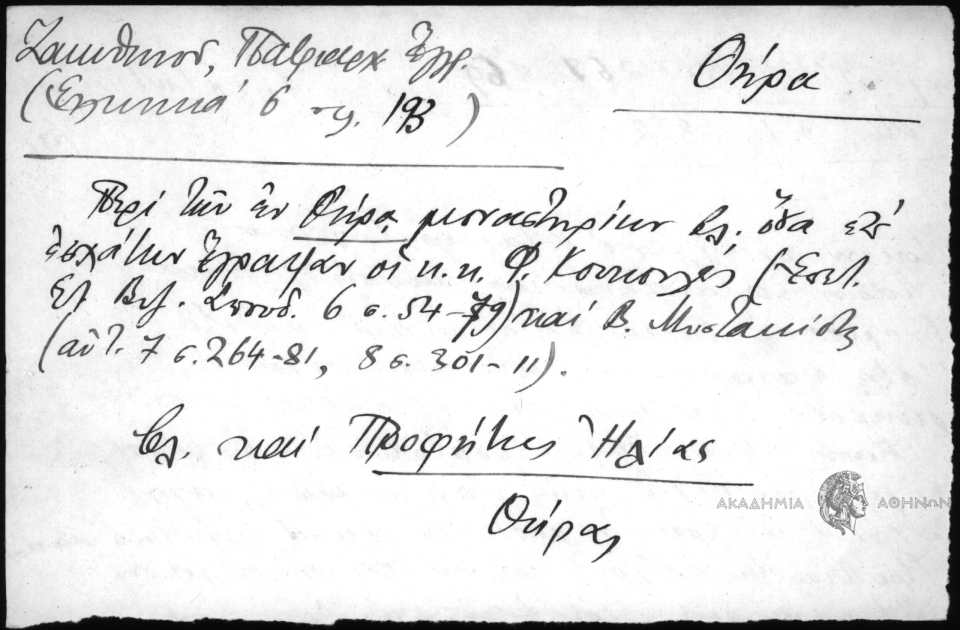 Ζακυθηνοῦ, Πατριαρχ Ἔγγρ.
(Ἑλληνικά 6 σ. 193)
Θήρα
Περὶ τῶν ἐν Θήρᾳ μοναστηρίων βλ. ὅσα ἐπ'
ἐσχάτων ἔγραψαν οἱ κ.κ. Φ. Κουκουλές (Ἐπετ.
Ετ Βυζ. Σπουδ. 6 σ. 54-79) καί Β. Μυστακίδης
(αὐτ. 7 σ. 264-81, 8 σ. 301-11).
βλ. καί Προφήτης Ἠλίας
Θήρας
ΑΚΑΔΗΜΙΑ ΑΘΗΝΩΝ